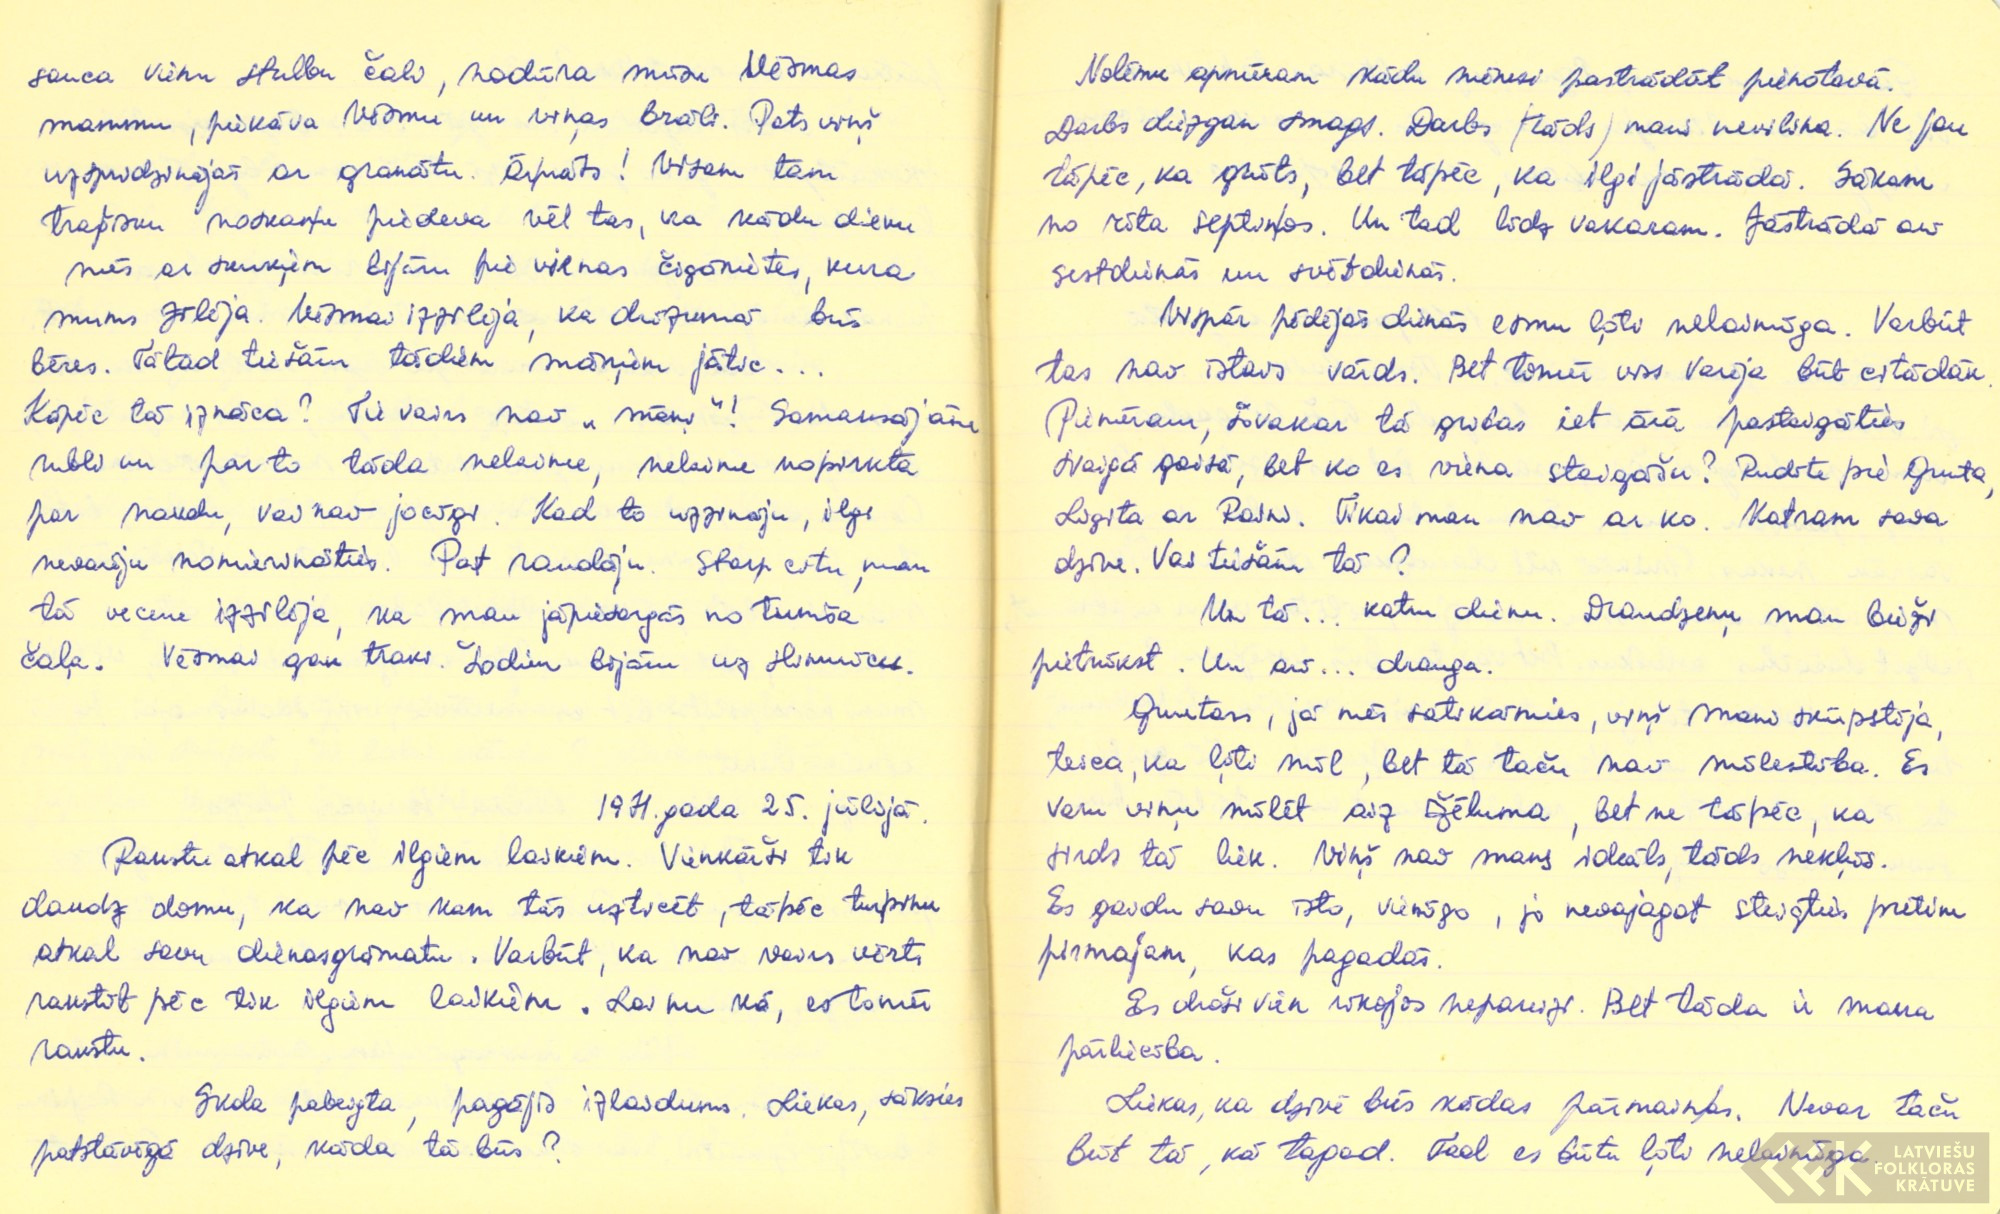 sauca vienu stulbu čali, nodūra mūsu Vēsmas
mammu, piekāva Vēsmu un viņas brāli. Pats viņš
uzspridzinājās ar granātu. Ārprāts! Visam tam
traģisku noskaņu piedeva vēl tas, ka kādu dienu
mēs ar skuķiem bijām pie vienas čigānietes, kura
mums zīlēja. Vēsmai izzīlēja, ka drīzumā būs
bēres. Tātad tiešām tādiem māņiem jātic...
Kāpēc tā iznāca? Tie vairs nav „māņi"! Samaksājām
rubli un par to tāda nelaime, nelaime nopirkta
par naudu, vai nav jocīgi. Kad to uzzināju, ilgi
nevarēju nomierināties. Pat raudāju. Starp citu, man
tā vecene izzīlēja, ka man jāpiesargās no tumša
čaļa. Vēsmai gan traki. Šodien bijām uz slimnīcu.
1971.gada 25. jūlijā.
Rakstu atkal pēc ilgiem laikiem. Vienkārši tik
daudz domu, ka nav kam tās uzticēt, tāpēc turpinu
atkal savu dienasgrāmatu. Varbūt, ka nav vairs vērts
rakstīt pēc tik ilgiem laikiem. Lai nu kā, es tomēr
rakstu.
Skola pabeigta, pagājis izlaidums. Liekas, sāksies
patstāvīgā dzīve, kāda tā būs?
Nolēmu apmēram kādu mēnesi pastrādāt pienotavā.
Darbs diezgan smags. Darbs (tāds) mani nevilina. Ne jau
tāpēc, ka grūts, bet tāpēc, ka ilgi jāstrādā. Sākam
no rīta septiņos. Un tad līdz vakaram. Jāstrādā arī
sestdienās un svētdienās.
Vispār pēdējās dienās esmu ļoti nelaimīga. Varbūt
tas nav īstais vārds. Bet tomēr viss varēja būt citādāk.
Piemēram, šovakar tā gribas iet ārā pastaigāties
svaigā gaisā, bet ko es viena staigāšu? Rudīte pie Gunta,
Ligita ar Raini. Tikai man nav ar ko. Katram sava
dzīve. Vai tiešām tā?
Un tā... katru dienu. Draudzeņu man bieži
pietrūkst. Un arī... drauga.
Guntars, jā mēs satikāmies, viņš mani skūpstīja,
teica, ka ļoti mīl, bet tā taču nav mīlestība. Es
varu viņu mīlēt aiz žēluma, bet ne tāpēc, ka
sirds tā liek. Viņš nav mans ideāls, tāds nekļūs.
Es gaidu savu īsto, vienīgo, jo nevajagot steigties pretim
pirmajam, kas pagadās.
Es droši vien rīkojos nepareizi. Bet tāda ir mana
pārliecība.
Liekas, ka dzīvē būs kādas pārmaiņas. Nevar taču
būt tā, kā tagad. Tad es būtu ļoti nelaimīga.
LATVIEŠU
FOLKLORAS
KRĀTUVE